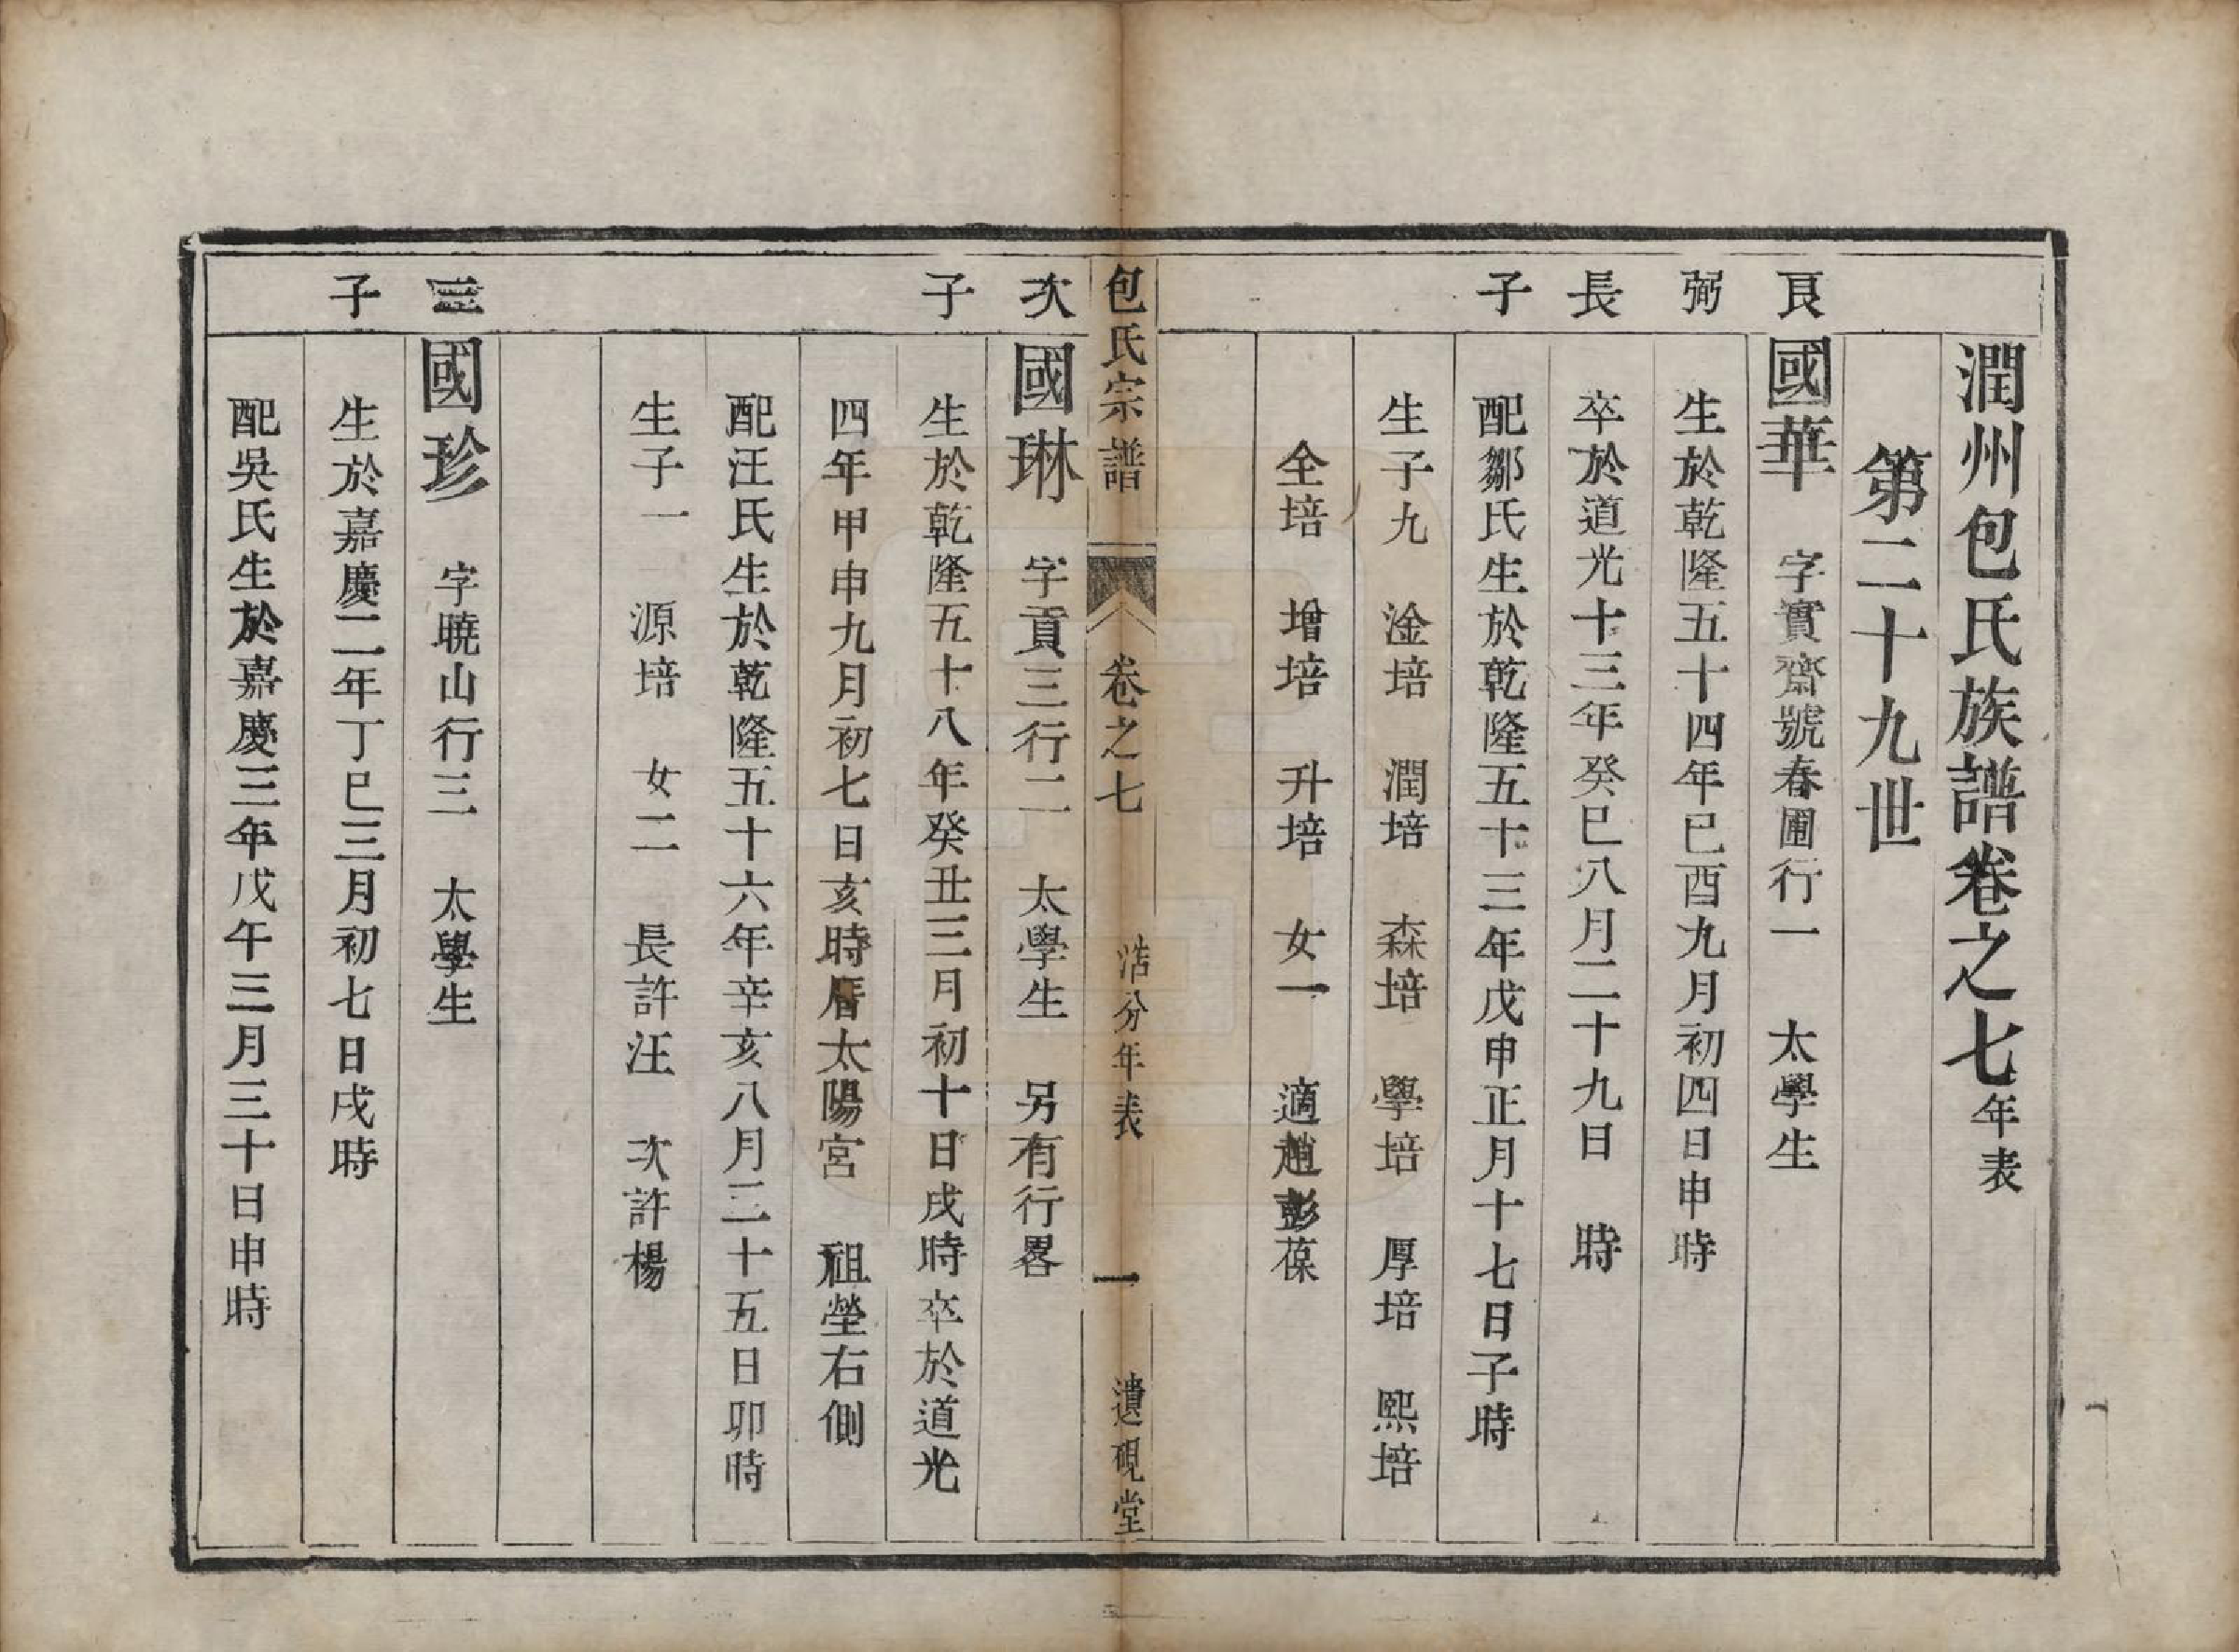 潤州包氏族譜卷之七年表
第二十九世
良弼長子
國華　字實齋號春圃行一　太學生
生於乾隆五十四年巳酉九月初四日申時
卒於道光十三年癸巳八月二十九日　時
配鄒氏生於乾隆五十三年戊申正月十七日子時
生子九　淦培　潤培　森培　學培　厚培　熙培
全培　增培　升培　女一　適趙彭葆
包氏宗譜　卷之七　浩分年表　一　遺硯堂
次子
國琳　字貢三行二　太學生　另有行畧
生於乾隆五十八年癸丑三月初十日戌時卒於道光
四年甲申九月初七日亥時厝太陽宮　祖塋右側
配汪氏生於乾隆五十六年辛亥八月二十五日卯時
生子一　源培　女二　長許汪　次許楊
三子
國珍　字曉山行三　太學生
生於嘉慶二年丁巳三月初七日戌時
配吳氏生於嘉慶三年戊午三月三十日申時